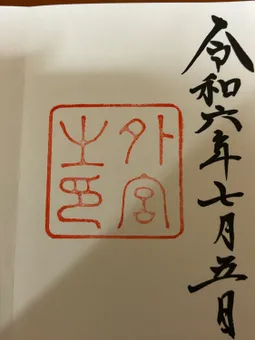 令和六年七月五月
外宮
之印